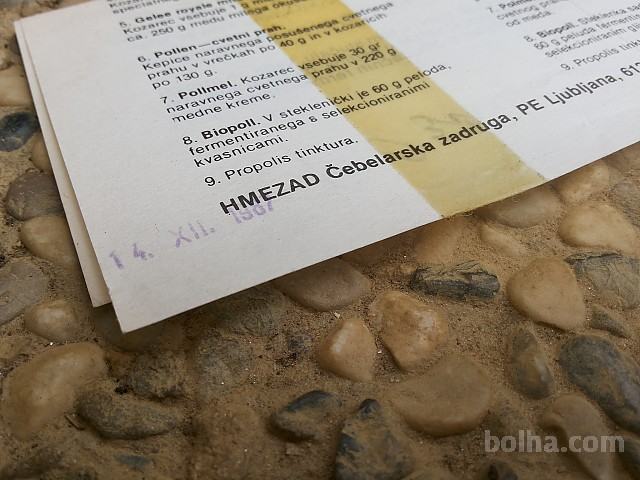 5. Gelee royale
Kozarec vsebuje
ca. 250 g medu
6. Pollen—cvetni prah.
Kepice naravnega posušenega cvetnega
prahu v vrečkah po 40 g in v kozarcih
po 130 g.
7. Pollmel. Kozarec vsebuje 30 gr
naravnega cvetnega prahu v 220 g
medne kreme.
8. Biopoll. V steklenički je 60 g peloda,
fermentiranega s selekcioniranimi
kvasnicami.
9. Propolis tinktura.
7. Pollmel.
cvetnega
od meda.
8. Biopoll. Steklenička
60 g peloda
selekcioniranim
9. Propolis
HMEZAD Čebelarska zadruga, PE Ljubljana,
14. XII. 1987
bolha.com